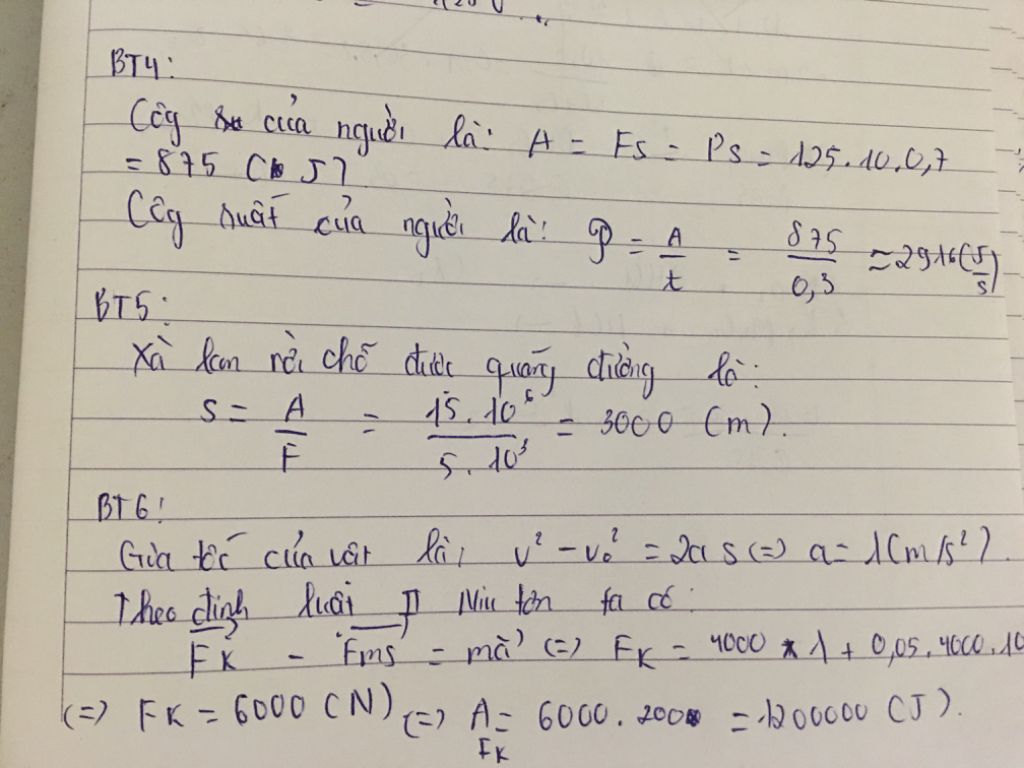 BT4:
Côg của người là: A = Fs = Ps = 125.10.0,7
= 875 (J)
Côg suất của người là: P = A/t = 875/0,3 ≈ 2916(J/s)
BT5:
Xà lan rời chỗ được quãng đường là:
s = A/F = 15.10⁶/5.10³ = 3000 (m).
BT6:
Gia tốc của vật là: v² - v₀² = 2as (=) a = 1(m/s²).
Theo định luật II Niu tơn ta có:
FK - Fms = ma (=) FK = 4000 * 1 + 0,05.4000.10
(=) FK = 6000 (N) (=) A FK = 6000.200 = 1200000 (J).